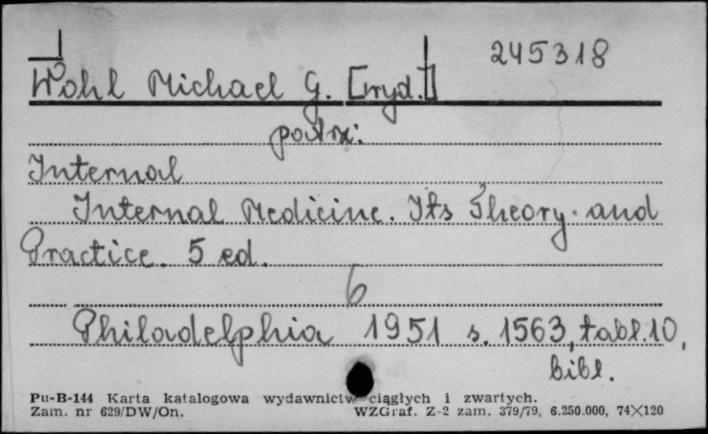 245318
Wohl Michael G. [wyd.]
patrz:
Internal
Internal Medicine. Its Theory and
Practice. 5 ed.
6
Philadelphia 1951 s. 1563, tabl. 10,
bibl.
Pu-B-144 Karta katalogowa wydawnictw ciągłych i zwartych.
Zam. nr 629/DW/On. WZGraf. Z-2 zam. 379/79, 6.250.000, 74×120